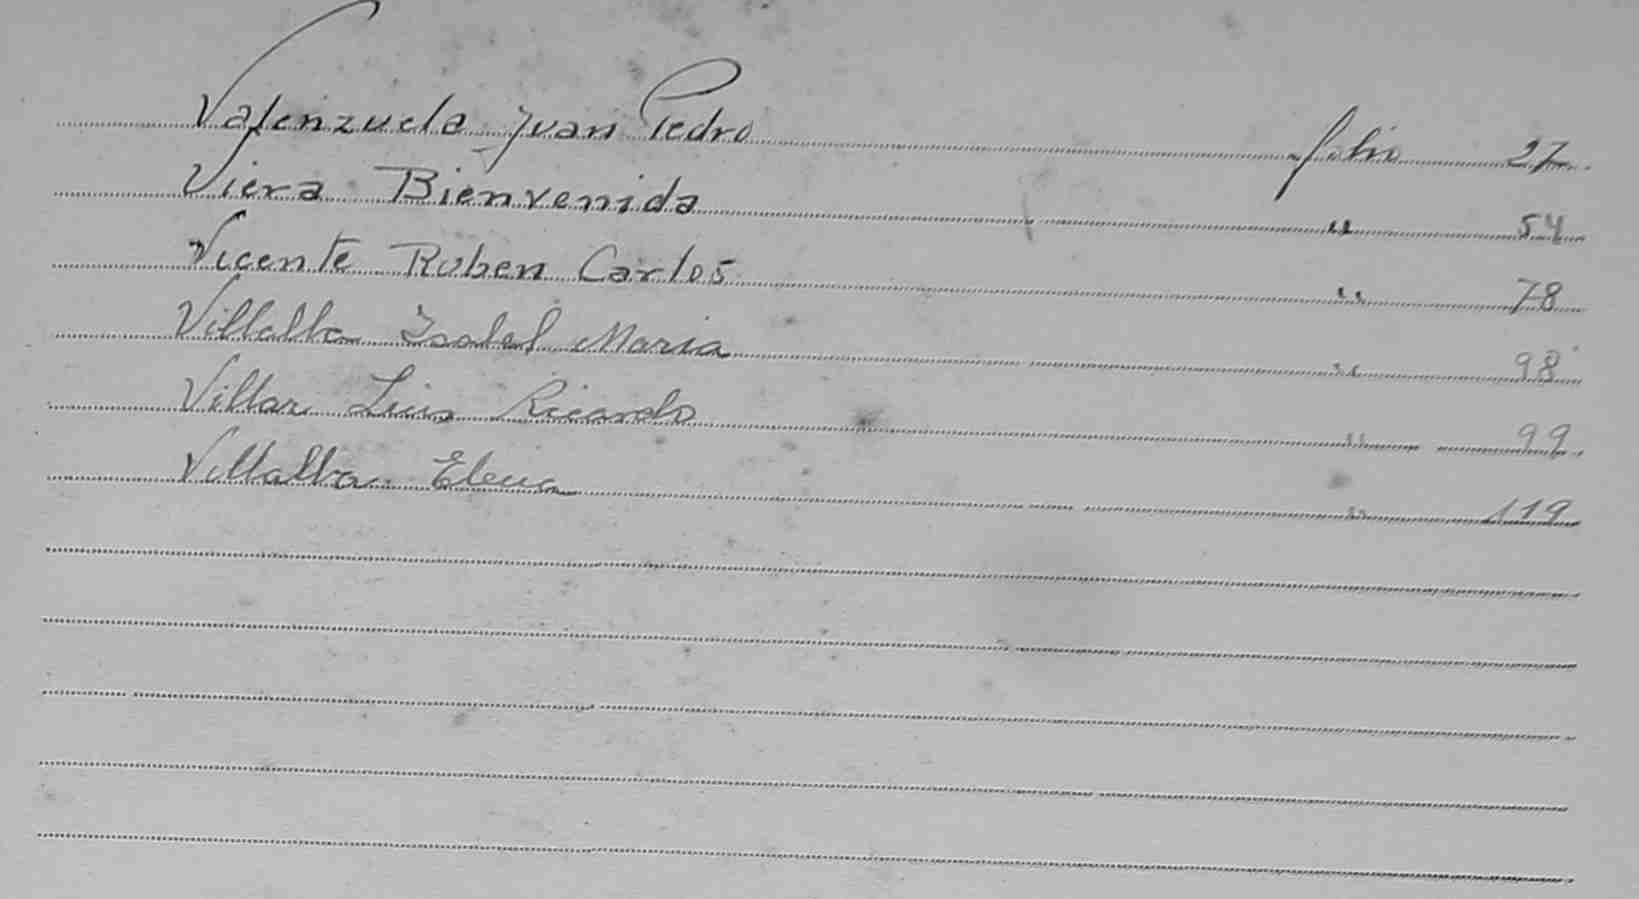 Valenzuela Juan Pedro folio 27
Viera Bienvenida " 54
Vicente Ruben Carlos " 78
Villalba Isabel Maria " 98
Villar Luis Ricardo " 99
Villalba Elena " 119